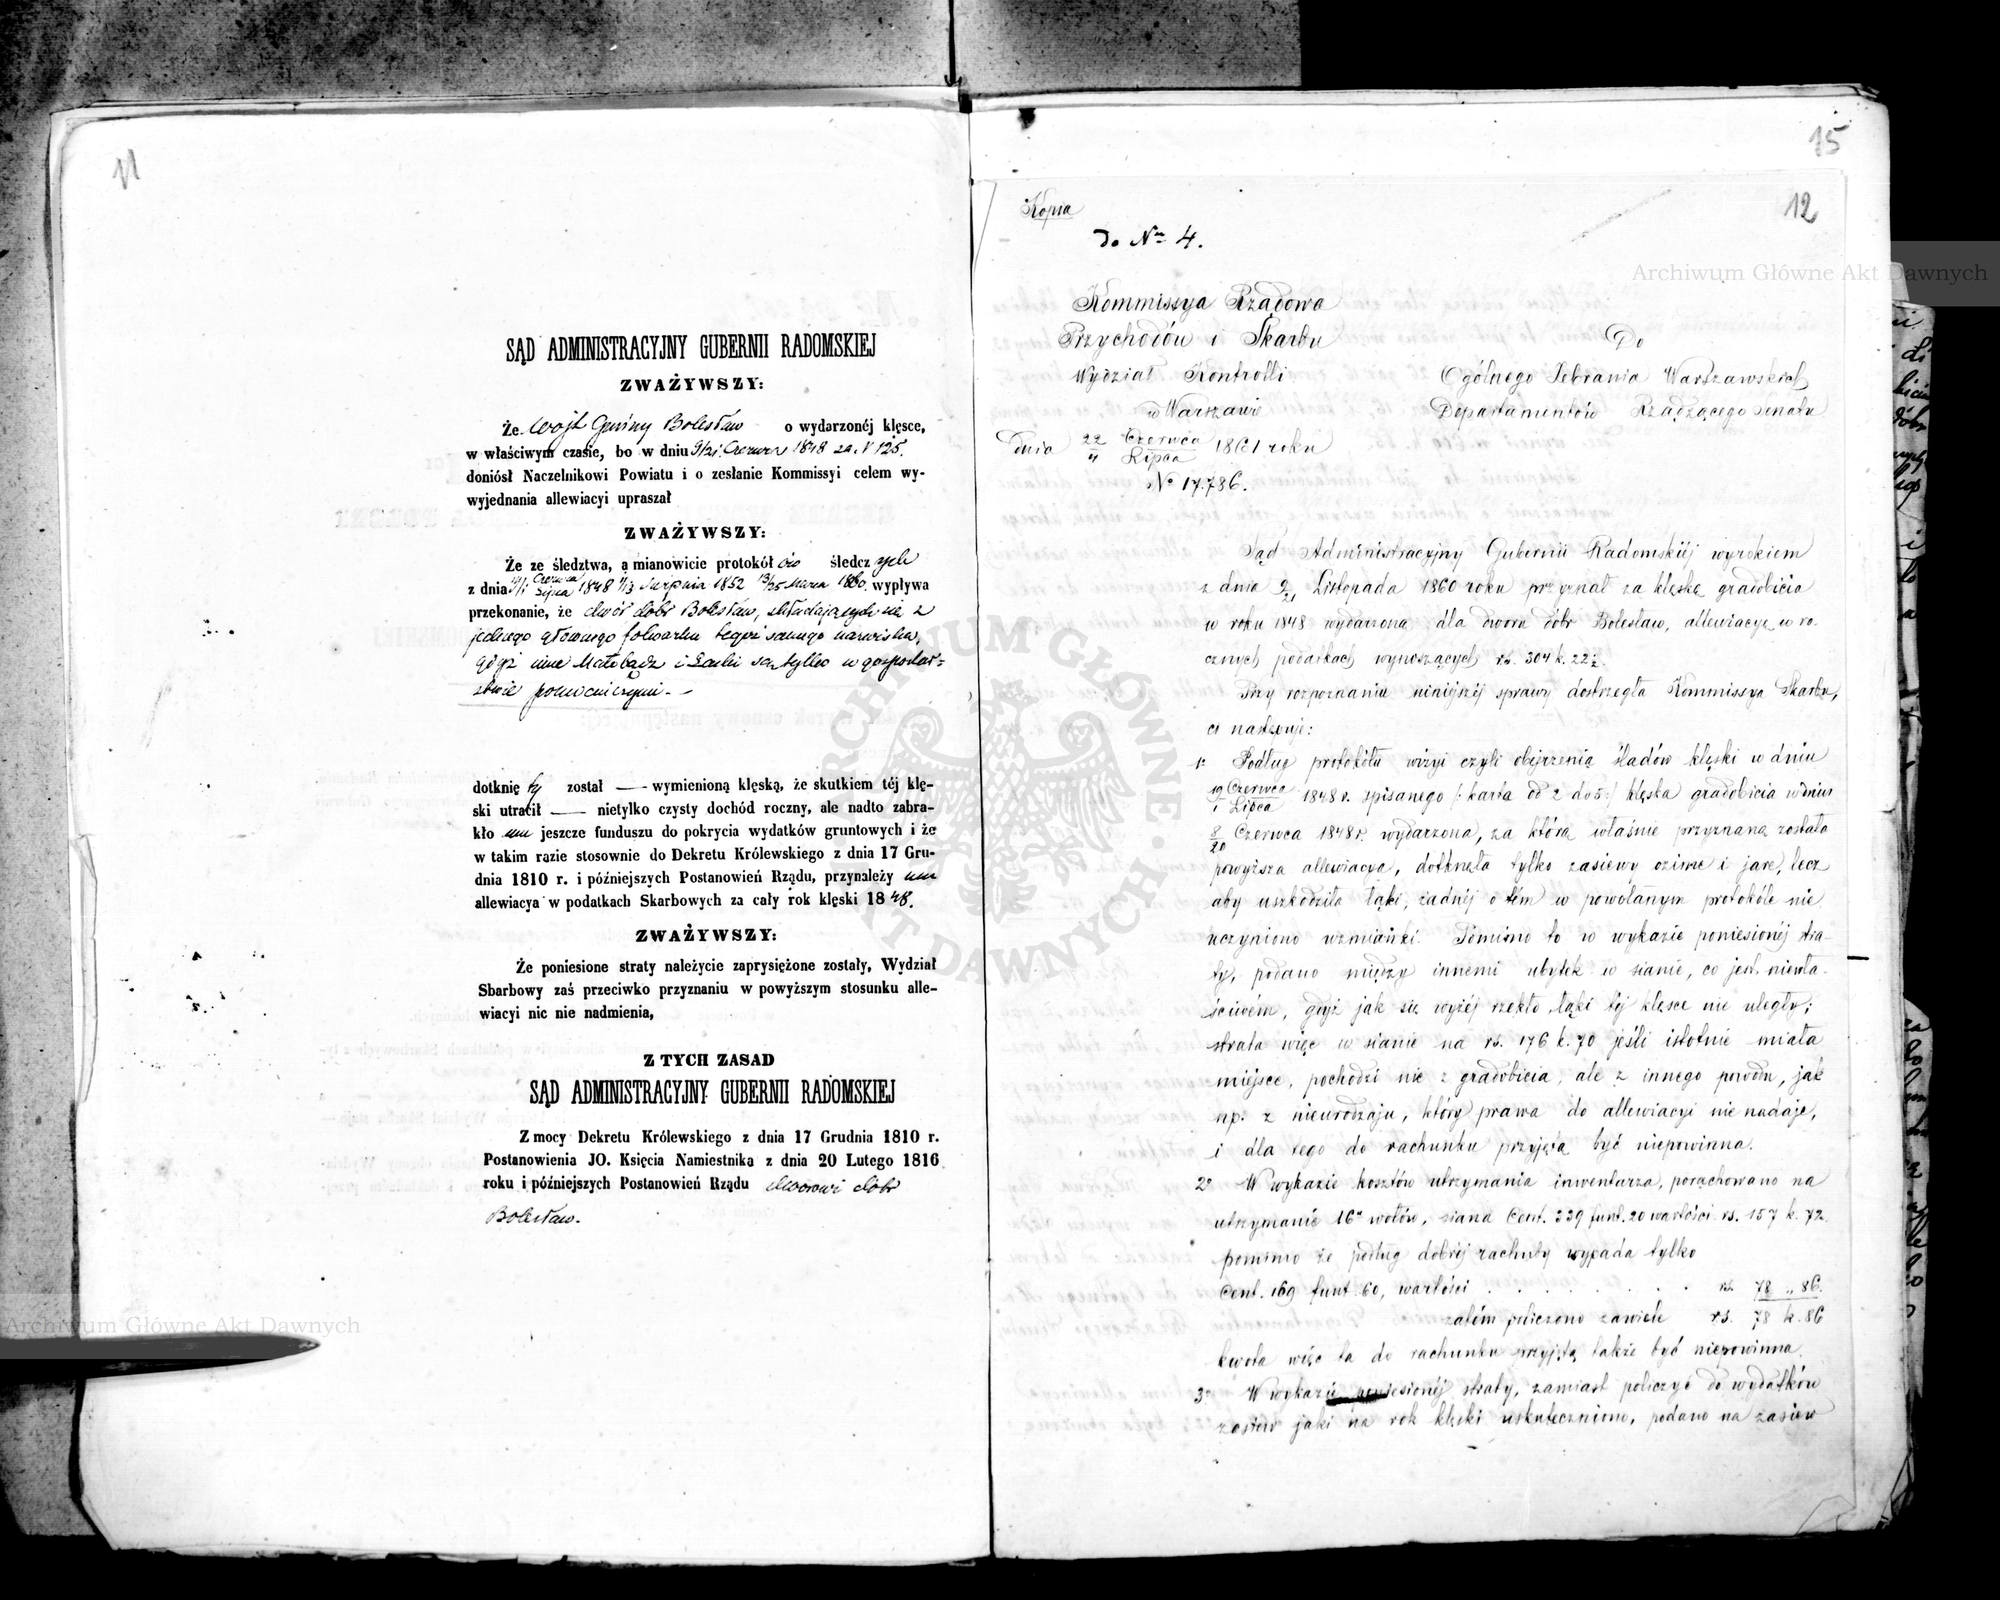 11
SĄD ADMINISTRACYJNY GUBERNII RADOMSKIEJ
ZWAŻYWSZY:
Że Wójt Gminy Bolesław o wydarzonéj klęsce,
w właściwym czasie, bo w dniu 9/21 Czerwca 1848 za N 125.
doniósł Naczelnikowi Powiatu i o zesłanie Kommissyi celem wy-
wyjednania allewiacyi upraszał
ZWAŻYWSZY:
Że ze śledztwa, a mianowicie protokół ów śledcz ych
z dnia 19/1 Czerwca/Lipca 1848 1/13 Sierpnia 1852 13/25 Marca 1860. wypływa
przekonanie, że dwór dóbr Bolesław, składających się z
jednego głównego folwarku tegoż samego nazwiska,
gdyż inne Małobądz i Laski są tylko w gospodar=
stwie pomocniczymi. -
dotknię ty został — wymienioną klęską, że skutkiem téj klę-
ski utracił — nietylko czysty dochód roczny, ale nadto zabra-
kło mu jeszcze funduszu do pokrycia wydatków gruntowych i że
w takim razie stosownie do Dekretu Królewskiego z dnia 17 Gru-
dnia 1810 r. i późniejszych Postanowień Rządu, przynależy mu
allewiacya w podatkach Skarbowych za cały rok klęski 18 48.
ZWAŻYWSZY:
Że poniesione straty należycie zaprysiężone zostały, Wydział
Sbarbowy zaś przeciwko przyznaniu w powyższym stosunku alle-
wiacyi nic nie nadmienia,
Z TYCH ZASAD
SĄD ADMINISTRACYJNY GUBERNII RADOMSKIEJ
Z mocy Dekretu Królewskiego z dnia 17 Grudnia 1810 r.
Postanowienia JO. Księcia Namiestnika z dnia 20 Lutego 1816
roku i późniejszych Postanowień Rządu dworowi dóbr
Bolesław.
15
12
Kopia
Do Nru 4.
Kommissya Rządowa
Przychodów i Skarbu
Wydział Kontrolli
w Warszawie
Dnia 22/4 Czerwca/Lipca 1861 roku
No 17.786.
Do
Ogólnego Zebrania Warszawskich
Departamentów Rządzącego Senatu
Sąd Administracyjny Gubernii Radomskiéj wyrokiem
z dnia 9/21 Listopada 1860 roku przyznał za klęskę gradobicia
w roku 1848 wydarzoną, dla dworu dóbr Bolesław, allewiacyę w ro-
cznych podatkach wynoszących rs. 304 k. 22½.
Przy rozpoznaniu niniejszéj sprawy dostrzegła Kommissya Skarbu,
co następuje:
1o Podług protokółu wizyi czyli obejrzenia śladów klęski w dniu
19/1 Czerwca/Lipca 1848 r. spisanego /: karta od 2 do 5 :/ klęska gradobicia w dniu
8/20 Czerwca 1848 r. wydarzona, za którą właśnie przyznaną została
powyższa allewiacya, dotknęła tylko zasiewy ozime i jare, lecz
aby uszkodziła łąki, żadnéj o tém w powołanym protokóle nie
uczyniono wzmianki. Pomimo to w wykazie poniesionéj stra-
ty, podano między innemi ubytek w sianie, co jest niewła-
ściwém, gdyż jak się wyżéj rzekło łąki téj klęsce nie uległy;
strata więc w sianie na rs. 176 k. 70 jeśli istotnie miała
miejsce, pochodzi nie z gradobicia, ale z innego powodu, jak
np: z nieurodzaju, który prawa do allewiacyi nie nadaje,
i dla tego do rachunku przyjęta być niepowinna.
2o W wykazie kosztów utrzymania inwentarza, porachowano na
utrzymanie 16u wołów, siana Cent. 339 funt. 20 wartości rs. 157 k. 72
pomimo że podług dobréj rachuby wypada tylko
Cent. 169 funt. 60, wartości . . . . . . . rs. 78 „ 86.
zatém policzono zawiele rs. 78 k. 86
kwota więc ta do rachunku przyjętą także być niepowinna.
3o W wykazie poniesionéj straty, zamiast policzyć do wydatków
zasiew jaki na rok klęski uskuteczniono, podano na zasiew
Archiwum Główne Akt Dawnych
Archiwum Główne Akt Dawnych
ARCHIWUM GŁÓWNE AKT DAWNYCH